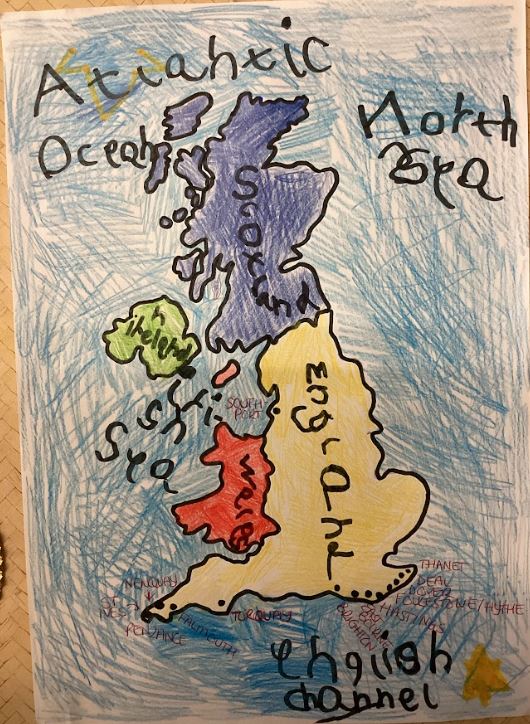 Atlantic
Ocean
North
Sea
Scotland
n
ireland
irish
Sea
England
SOUTH
PORT
wales
NEWQUAY
ST
IVES
PENZANCE
FALMOUTH
TORQUAY
THANET
DEAL
DOVER
FOLKESTONE/HYTHE
HASTINGS
BRIGHTON
English
channel